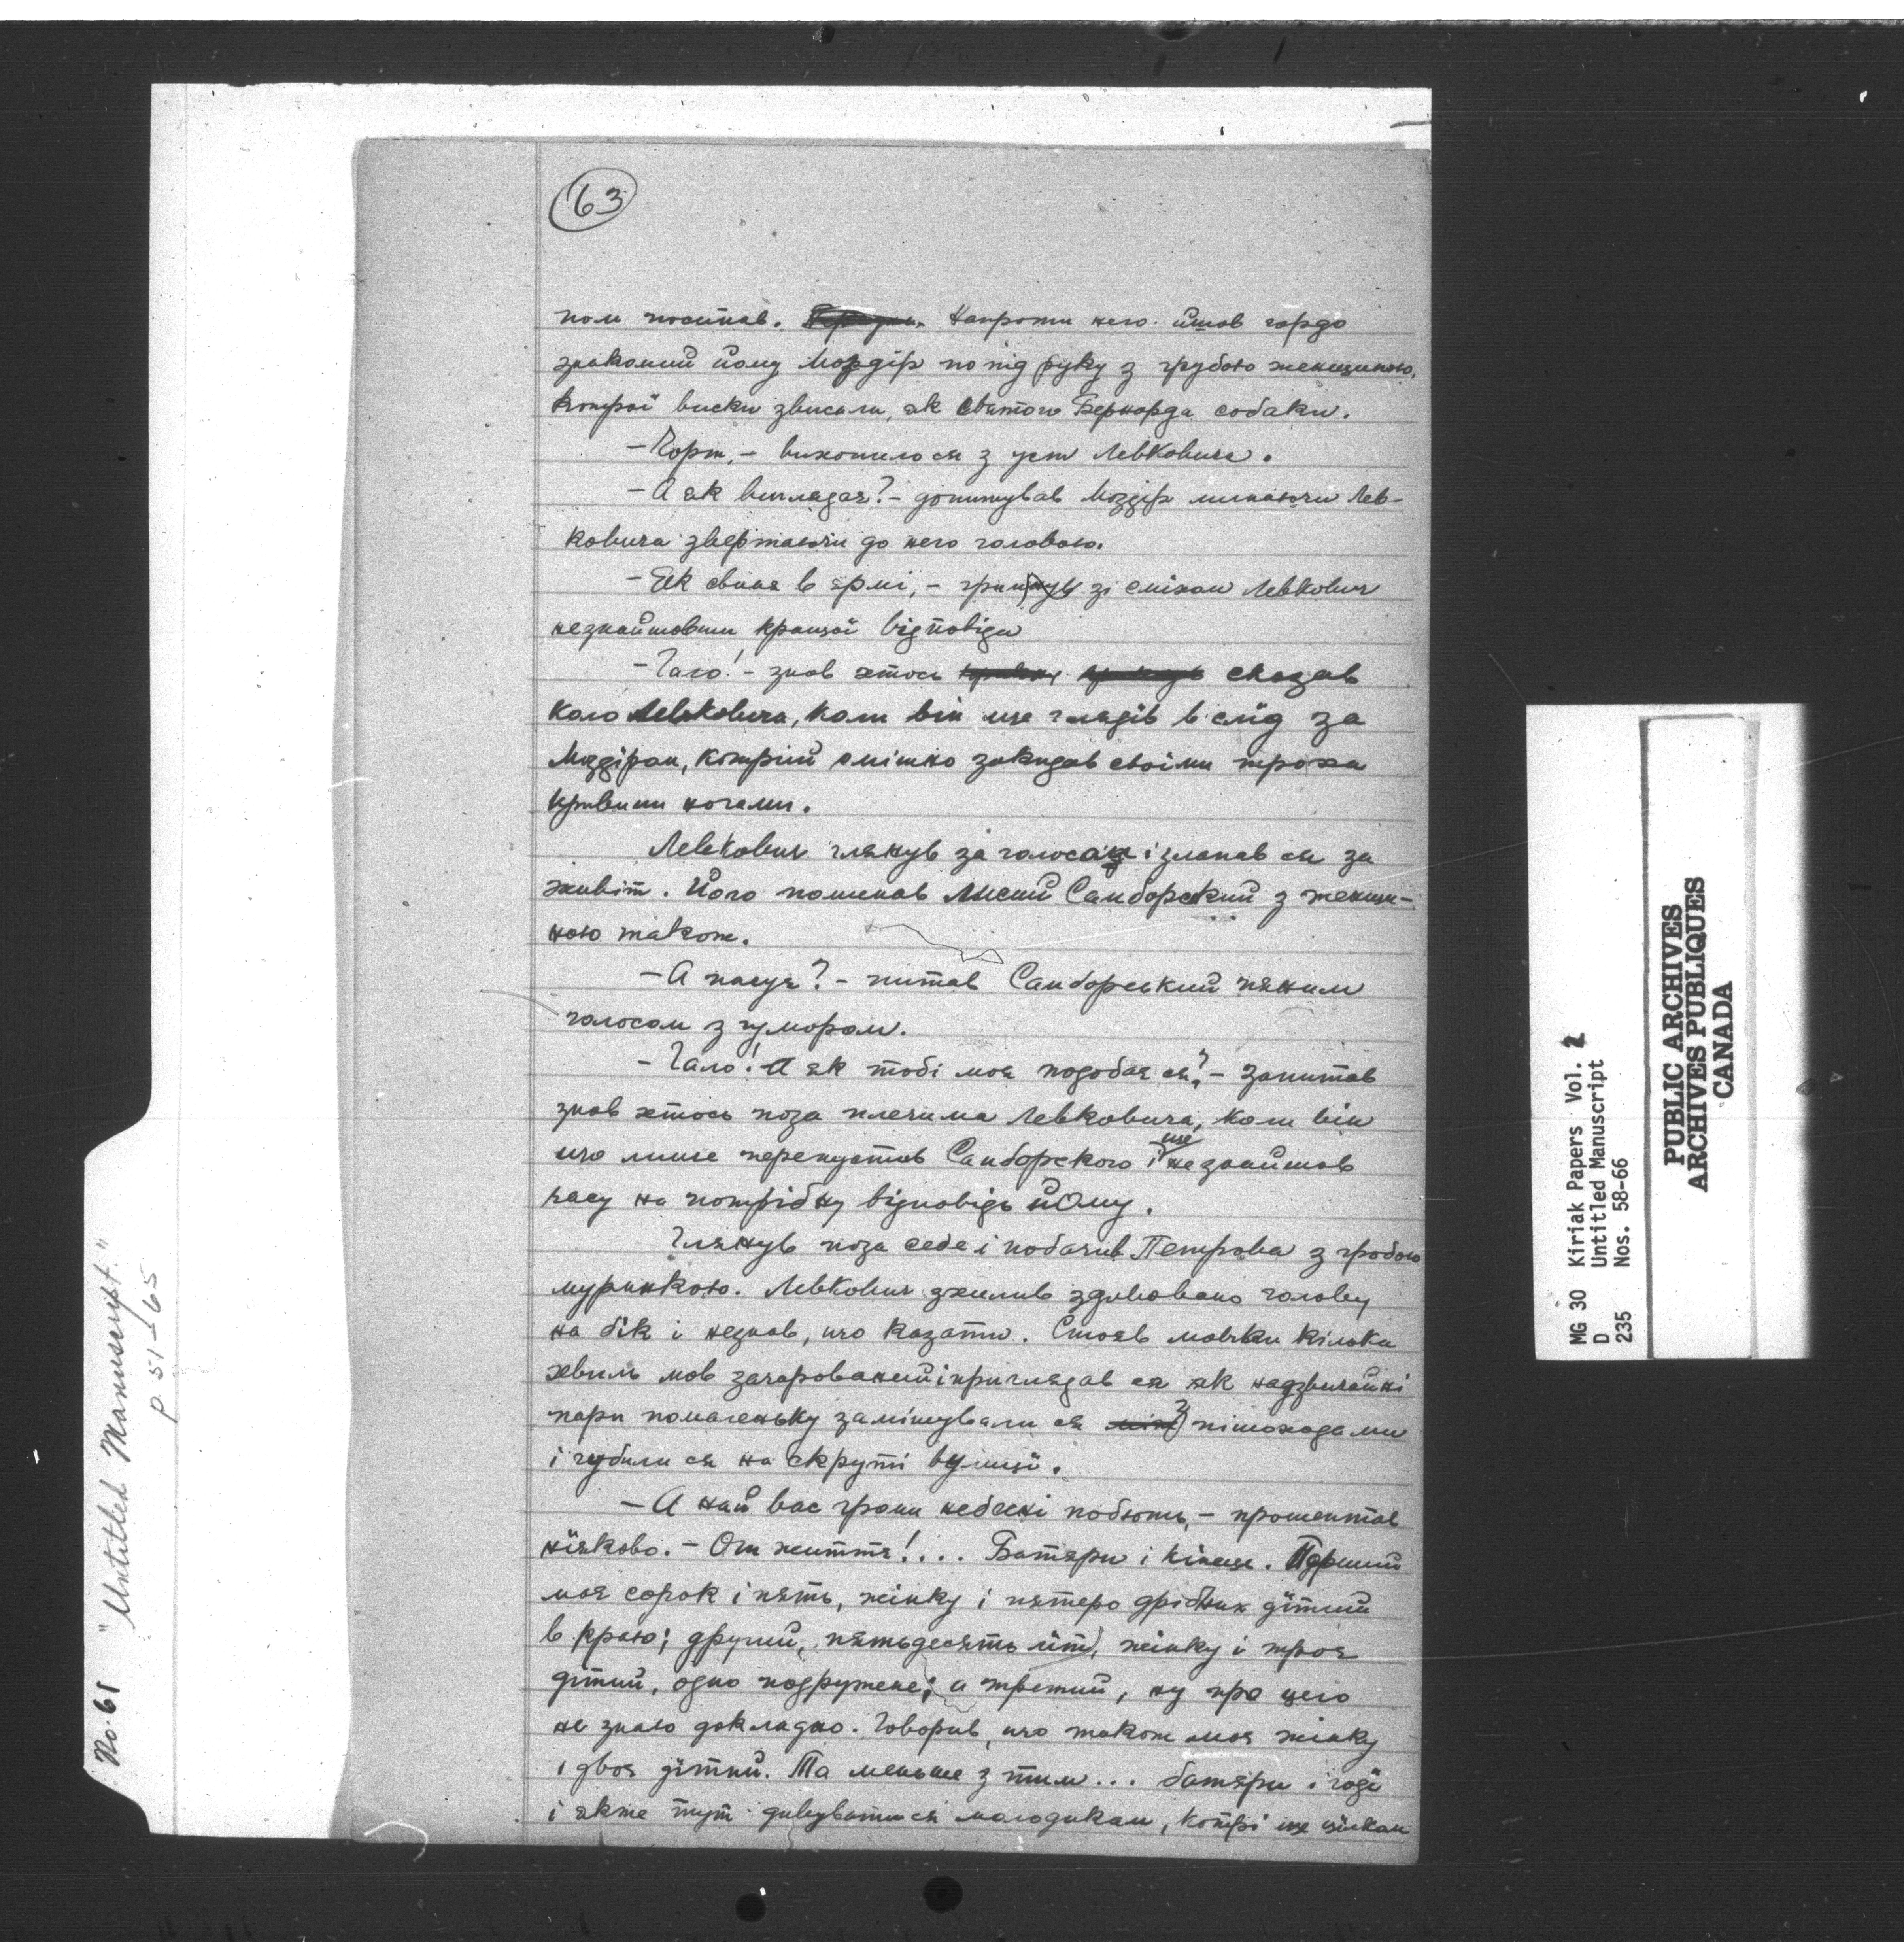 63
пом поситав. Напроти него йшов гордо
знакомий йому Моздір по під руку з грубою женщиною,
котрої виски звисали, як святого Бернарда собаки.
— Чорт, — вихопилося з уст Левковича.
— А як виглядає? — допитував Моздір минаючи Лев-
ковича звертаючи до него головою.
— Як свиня в ярмі, — зі сміхом Левкович
незнайшовши кращої відповіди
— Гало! — знов хтось сказав
коло Левковича, коли він ще глядів в слід за
Моздіром, котрий смішно закидав своїми троха
кривими ногами.
Левкович глянув за голосом і злапав ся за
живіт. Його поминав Лисий Самборский з женщи-
ною також.
— А пасує? — питав Самборський пяним
голосом з гумором.
— Гало! А як тобі моя подобає ся? — запитав
знов хтось поза плечима Левковича, коли він
що лише перепустив Самборского і ще незнайшов
часу на потрібну відповідь йому.
Глянув поза себе і побачив Петрова з грубою
муринкою. Левкович зхилив здивовано голову
на бік і незнав, що казати. Стояв мовчки кілька
хвиль мов зачарований і приглядав ся як надзвичайні
пари помаленьку замішували ся з пішоходами
і губили ся на скруті вулиці.
— А най вас громи небесні побють, — прошептав
ніяково. — От життя!... Батяри і кінець. Перший
має сорок і пять, жінку і пятеро дрібних дітий
в краю; другий, пятьдесять літ, жінку і троє
дітий, одно подружене; а третий, ну про цего
не знаю докладно. Говорив, що також має жінку
і двоє дітий. Та меньше з тим... батяри і годі
і якже тут дивуватися молодикам, котрі ще цілком
No. 61 "Untitled Manuscript."
p. 51-65
MG 30 Kiriak Papers Vol. 2
D Untitled Manuscript
235 Nos. 58-66
PUBLIC ARCHIVES
ARCHIVES PUBLIQUES
CANADA